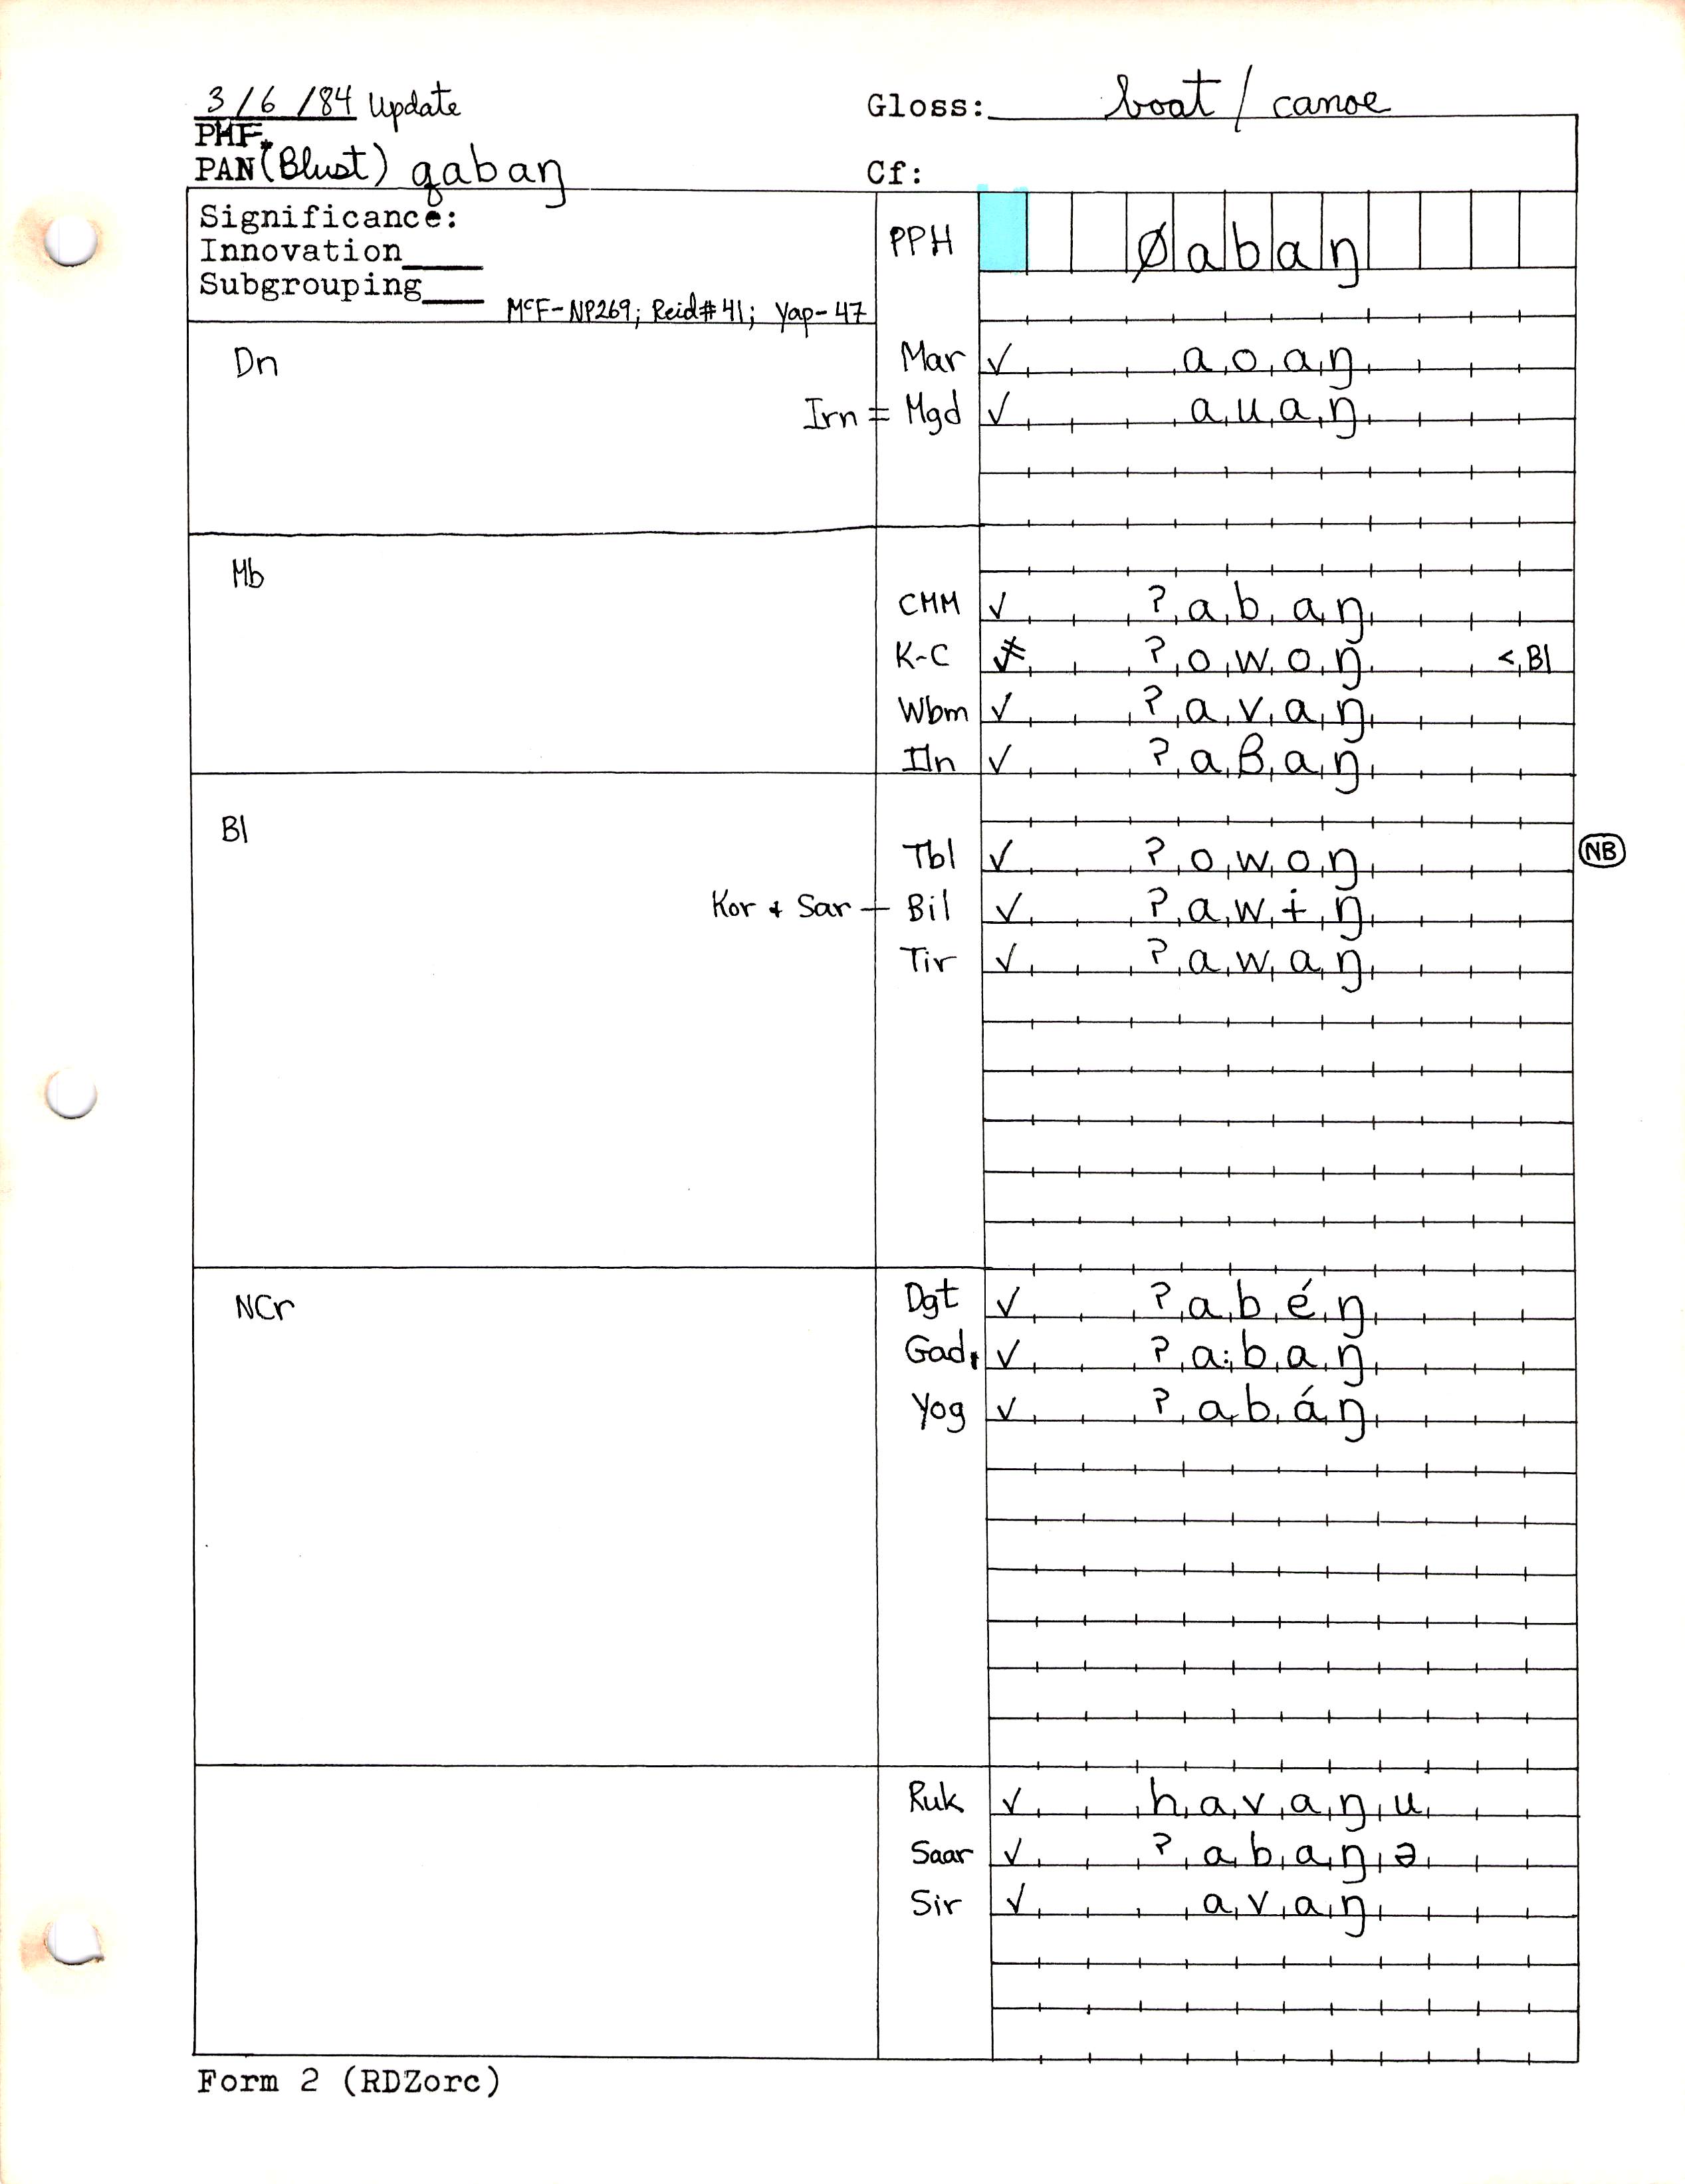 3/6/84 Update
Gloss: boat / canoe
PHF
PAN (Blust) *qabaŋ
Cf:
Significance:
Innovation____
Subgrouping____
McF-NP269; Reid#41; Yap-47
PPH Øabaŋ
Dn
Mar ✓ aoaŋ
Irn = Mgd ✓ auaŋ
Mb
CMM ✓ ʔabaŋ
K-C ʔowoŋ < Bl
Wbm ✓ ʔavaŋ
Iln ✓ ʔaβaŋ
Bl
Tbl ✓ ʔowoŋ NB
Kor + Sar – Bil ✓ ʔawɨŋ
Tir ✓ ʔawaŋ
NCr
Dgt ✓ ʔabéŋ
Gad. ✓ ʔa:baŋ
Yog ✓ ʔabáŋ
Ruk ✓ havaŋu
Saar ✓ ʔabaŋə
Sir ✓ avaŋ
Form 2 (RDZorc)